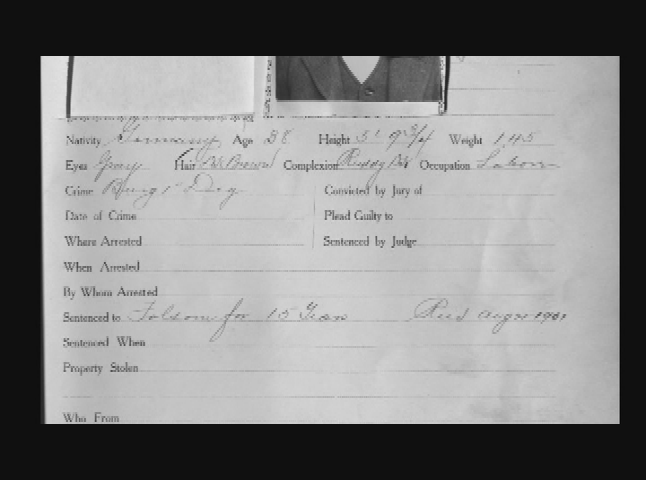 Nativity Germany Age 38 Height 5' 9 3/4 Weight 145
Eyes Gray Hair D. Brown Complexion Ruddy Occupation Labor
Crime Burg 1st Deg Convicted by Jury of
Date of Crime Plead Guilty to
Where Arrested Sentenced by Judge
When Arrested
By Whom Arrested
Sentenced to Folsom for 15 Years Recd 1901
Sentenced When
Property Stolen
Who From